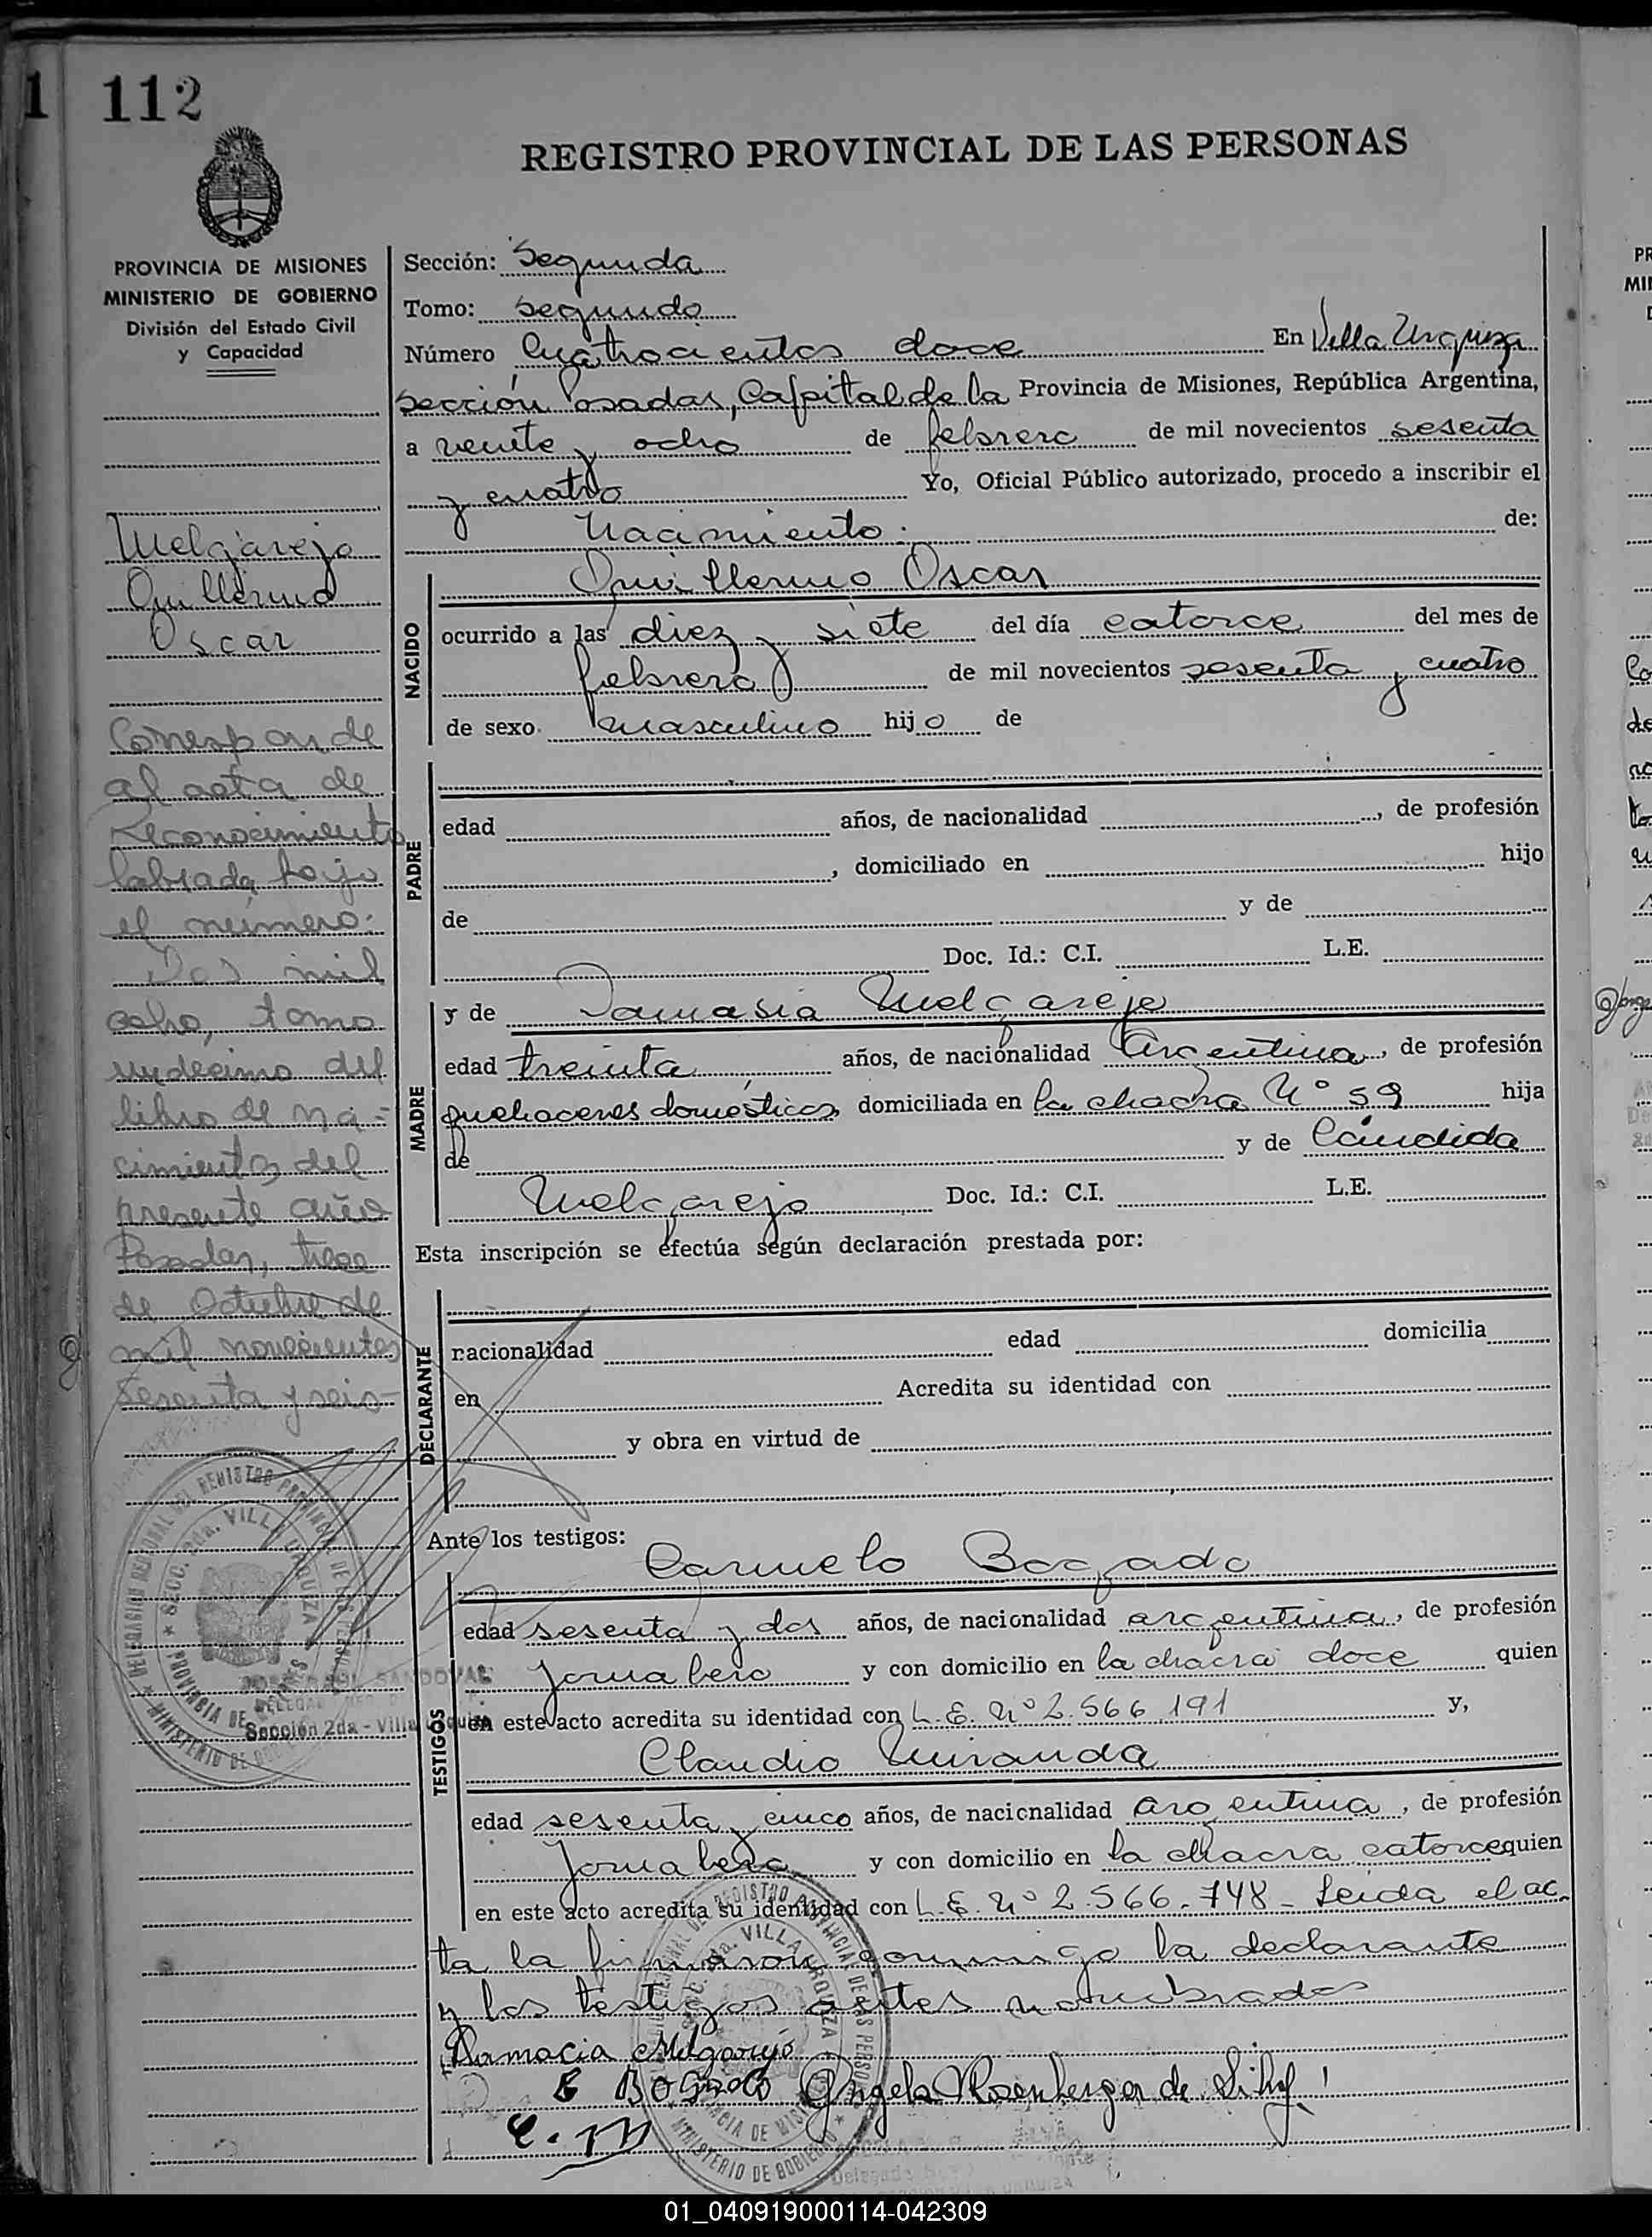 1 112
REGISTRO PROVINCIAL DE LAS PERSONAS
PROVINCIA DE MISIONES
MINISTERIO DE GOBIERNO
División del Estado Civil
y Capacidad
Melgarejo
Guillermo
Oscar
Corresponde
al acta de
Reconocimiento
labrada bajo
el número:
Dos mil
ocho, tomo
undecimo del
libro de na-
cimientos del
presente año
Posadas, trece
de Octubre de
mil novecientos
sesenta y seis-
Sección: Segunda
Tomo: segundo
Número Cuatrocientos doce En Villa Urquiza
sección Posadas, Capital de la Provincia de Misiones, República Argentina,
a veinte y ocho de febrero de mil novecientos sesenta
y cuatro Yo, Oficial Público autorizado, procedo a inscribir el
Nacimiento. de:
NACIDO
Guillermo Oscar
ocurrido a las diez y siete del día catorce del mes de
febrero de mil novecientos sesenta y cuatro
de sexo masculino hijo de
PADRE
edad años, de nacionalidad , de profesión
, domiciliado en hijo
de y de
Doc. Id.: C.I. L.E.
MADRE
y de Damasia Melgarejo
edad treinta años, de nacionalidad Argentina, de profesión
quehaceres domésticos, domiciliada en la chacra Nº 59 hija
de y de Cándida
Melgarejo Doc. Id.: C.I. L.E.
Esta inscripción se efectúa según declaración prestada por:
DECLARANTE
racionalidad edad domicilia
en Acredita su identidad con
y obra en virtud de
Ante los testigos:
TESTIGOS
Carmelo Bogado
edad sesenta y dos años, de nacionalidad argentina, de profesión
Jornalero y con domicilio en la chacra doce quien
en este acto acredita su identidad con L.E. Nº 2.566.191 y,
Claudio Miranda
edad sesenta y cinco años, de nacionalidad argentina, de profesión
Jornalero y con domicilio en la chacra catorce quien
en este acto acredita su identidad con L.E. Nº 2.566.748 - Leída el ac
ta la firmaron conmigo la declarante
y los testigos antes nombrados
Damacia Melgarejo
Angela Rosenberger de
C. M
DELEGACION REGIONAL DEL REGISTRO PROVINCIAL DE LAS PERSONAS
SECC. 2da. VILLA URQUIZA
PROVINCIA DE MISIONES
MINISTERIO DE GOBIERNO
SANDOVAL
Sección 2da - Villa Urquiza
REGISTRO PROVINCIAL DE LAS PERSONAS
VILLA URQUIZA
MINISTERIO DE GOBIERNO
01_040919000114-042309